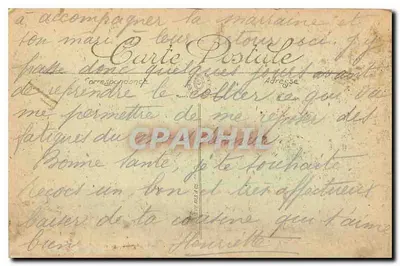 à accompagner la marraine et
son mari à leur retour ici. J'y
Carte Postale
Correspondance Adresse
donc quelques jours avant
de reprendre le collier ce qui va
me permettre de me reposer des
fatigues du
CPARHIL
Bonne Santé, je te souhaite.
Reçois un bon et très affectueux
baiser de ta cousine qui t'aime
bien Henriette